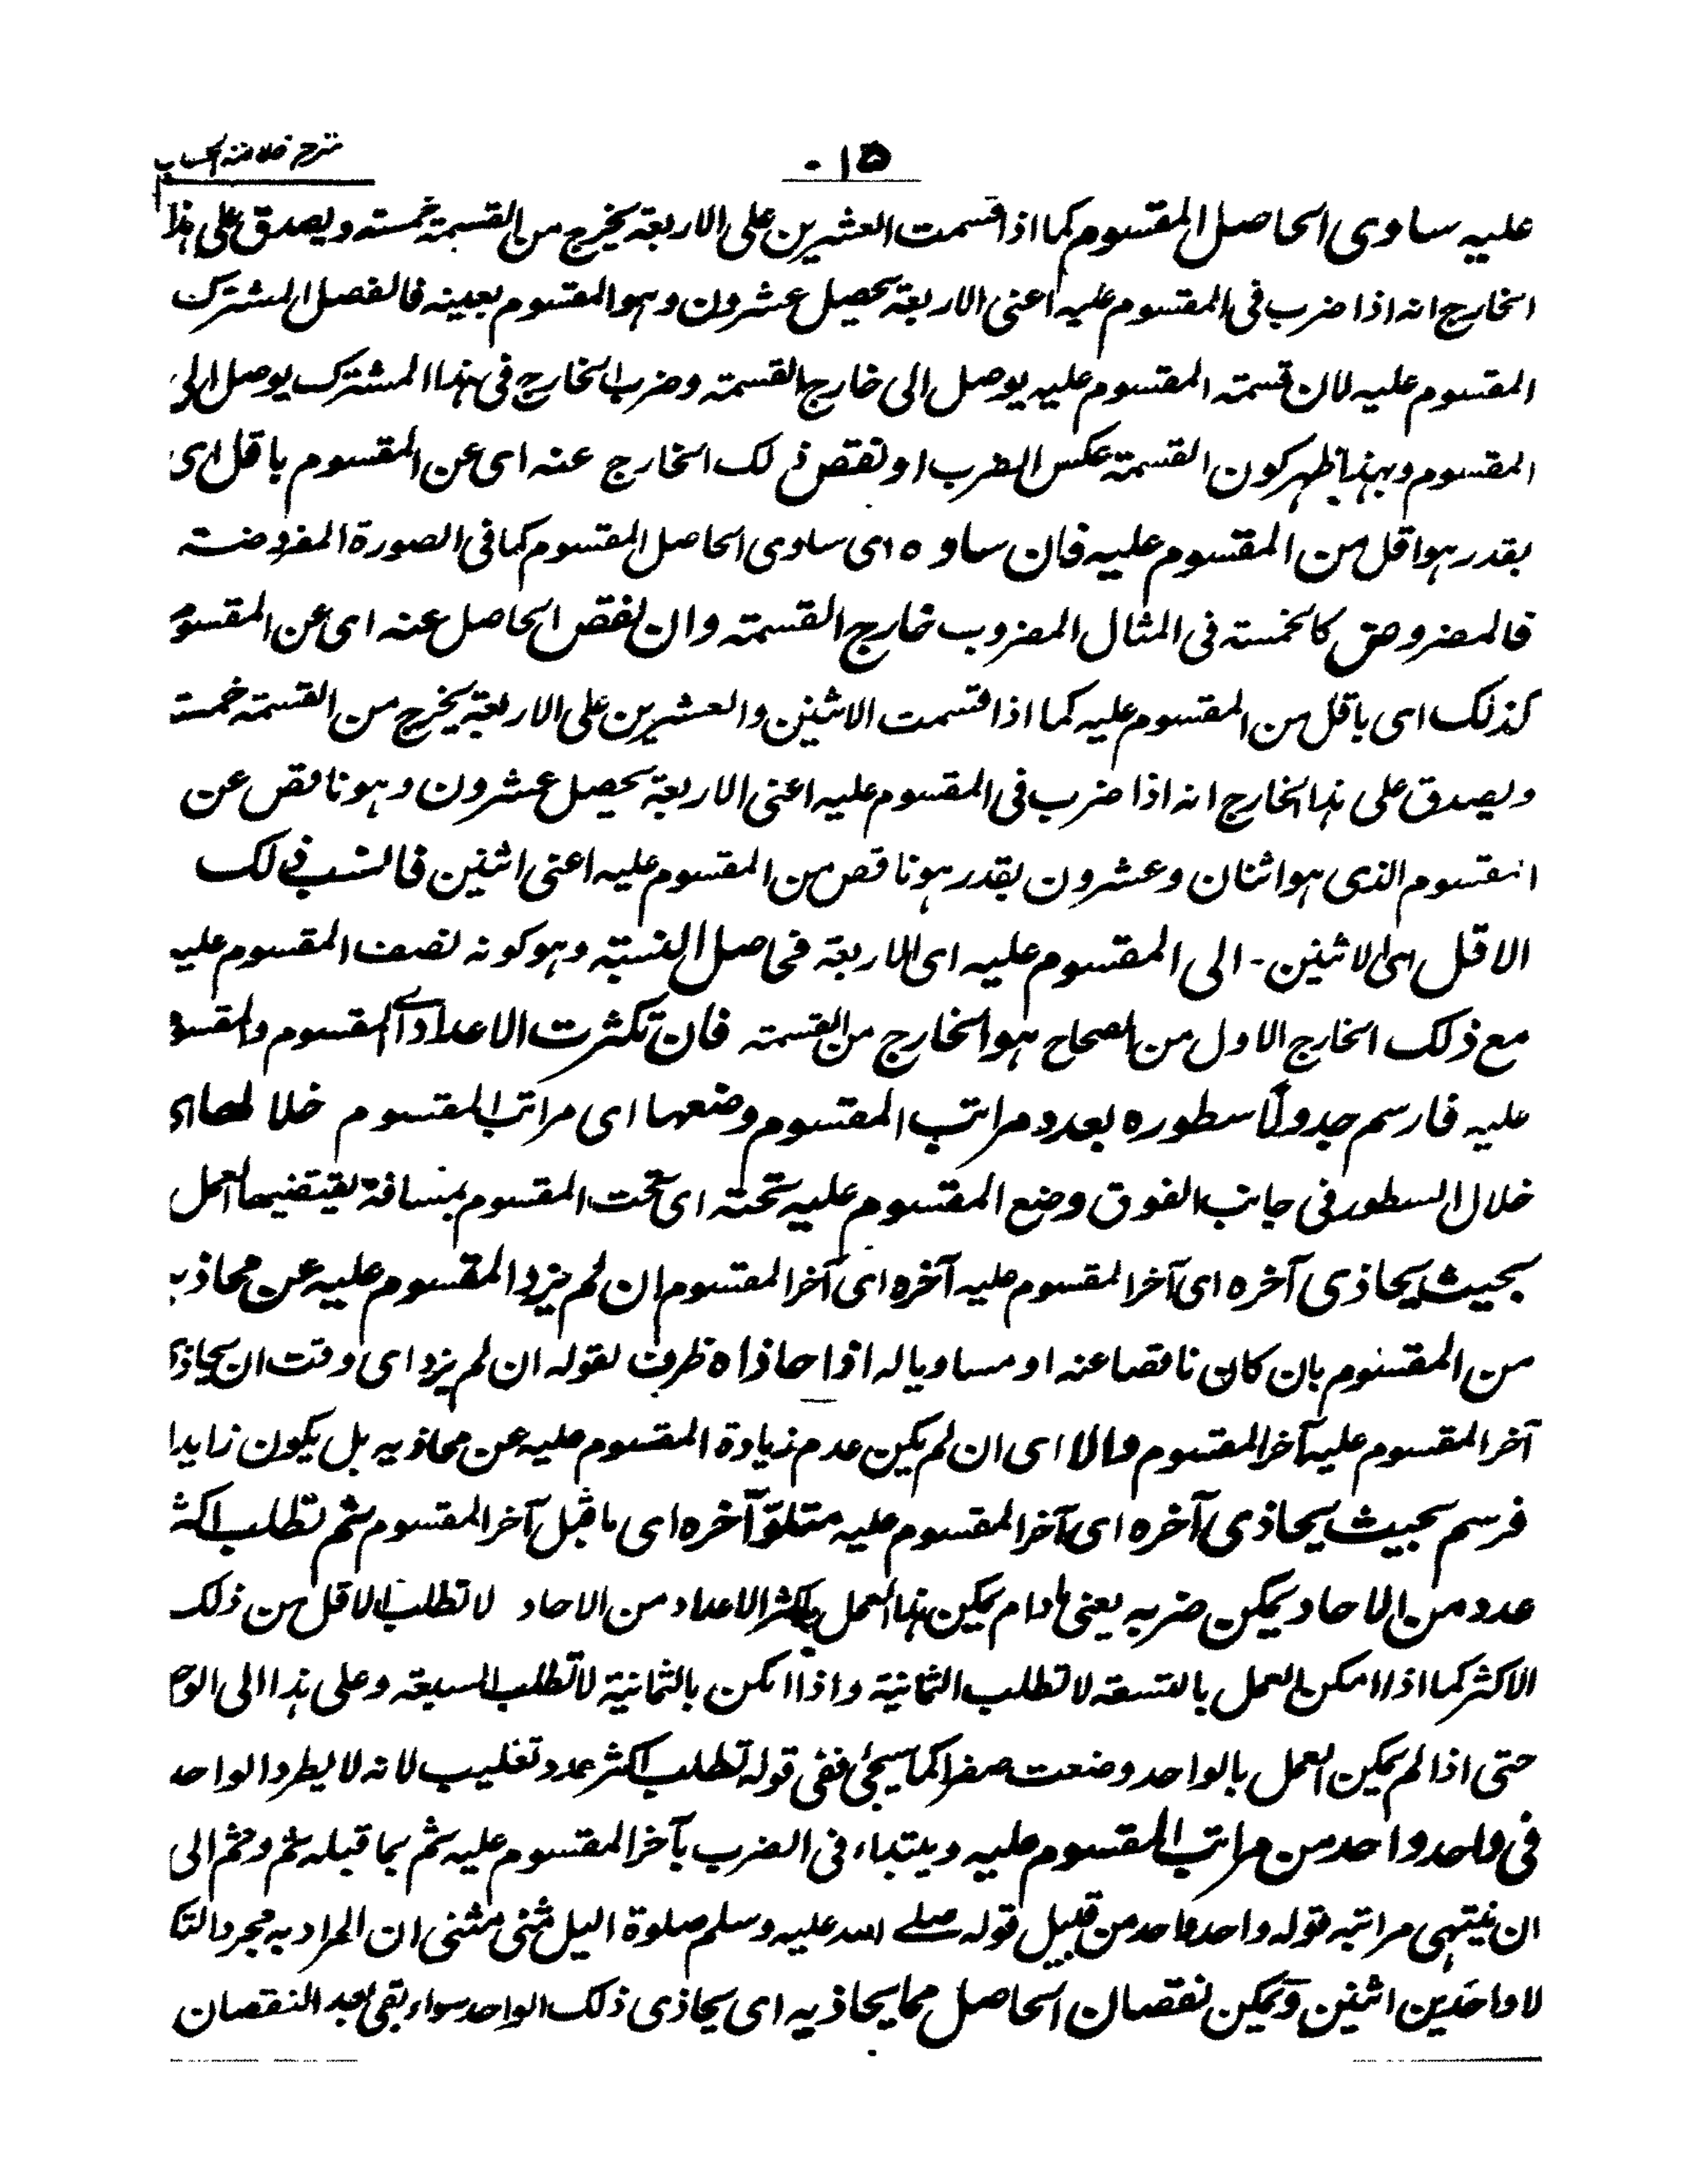 ۱۵۰
شرح خلاصة الحساب
عليه ساوى الحاصل المقسوم كما اذا قسمت العشرين على الاربعة يخرج من القسمة خمسة ويصدق على هذا
الخارج انه اذا ضرب فى المقسوم عليه اعنى الاربعة يحصل عشرون وهو المقسوم بعينه فالفصل المشترك
المقسوم عليه لان قسمته المقسوم عليه يوصل الى خارج القسمة وضرب الخارج فى هذا المشترك يوصل الى
المقسوم وبهذا ظهر كون القسمة عكس الضرب او نقص ذلك الخارج عنه اى عن المقسوم باقل اى
بقدر هو اقل من المقسوم عليه فان ساوه اى ساوى الحاصل المقسوم كما فى الصورة المفروضة
فالمفروض كالخمسة فى المثال المضروب خارج القسمة وان نقص الحاصل عنه اى عن المقسوم
كذلك اى باقل من المقسوم عليه كما اذا قسمت الاثنين والعشرين على الاربعة يخرج من القسمة خمسة
ويصدق على هذا الخارج انه اذا ضرب فى المقسوم عليه اعنى الاربعة يحصل عشرون وهو ناقص عن
المقسوم الذى هو اثنان وعشرون بقدر هو ناقص من المقسوم عليه اعنى اثنين فالنسب ذلك
الاقل اى الاثنين - الى المقسوم عليه اى الاربعة فحاصل النسبة وهو كونه نصف المقسوم عليه
مع ذلك الخارج الاول من الصحاح هو الخارج من القسمة فان تكثرت الاعداد اى المقسوم والمقسو
عليه فارسم جدولا سطوره بعدد مراتب المقسوم وضعها اى مراتب المقسوم خلالها اى
خلال السطور فى جانب الفوق وضع المقسوم عليه تحته اى تحت المقسوم بمسافة يقتضيها العمل
بحيث يحاذى آخره اى آخر المقسوم عليه آخره اى آخر المقسوم ان لم يزد المقسوم عليه عن محاذيه
من المقسوم بان كان ناقصا عنه او مساويا له اذا حاذاه ظرف لقوله ان لم يزد اى وقت ان يحاذى
آخر المقسوم عليه آخر المقسوم والا اى ان لم يكن عدم زيادة المقسوم عليه عن محاذيه بل يكون زايدا
فرسم بحيث يحاذى آخره اى آخر المقسوم عليه متلو آخره اى ما قبل آخر المقسوم ثم تطلب اكثر
عدد من الاحاد يمكن ضربه يعنى مادام يمكن هذا العمل باكثر الاعداد من الاحاد لا تطلب الاقل من ذلك
الاكثر كما اذا امكن العمل بالتسعة لا تطلب الثمانية واذا امكن بالثمانية لا تطلب السبعة وعلى هذا الى الواحد
حتى اذا لم يمكن العمل بالواحد وضعت صفرا كما سيجئ ففى قوله تطلب اكثر عدد تغليب لانه لا يطرد الواحد
فى واحد واحد من مراتب المقسوم عليه ويبتداء فى الضرب بآخر المقسوم عليه ثم بما قبله ثم وثم الى
ان ينتهى مراتبه قوله واحد واحد من قبيل قوله صلے الله عليه وسلم صلوة اليل مثنى مثنى ان المراد به مجرد التكا
لا واحدين اثنين ويمكن نقصان الحاصل مما يحاذيه اى يحاذى ذلك الواحد سواء بقى بعد النقصان